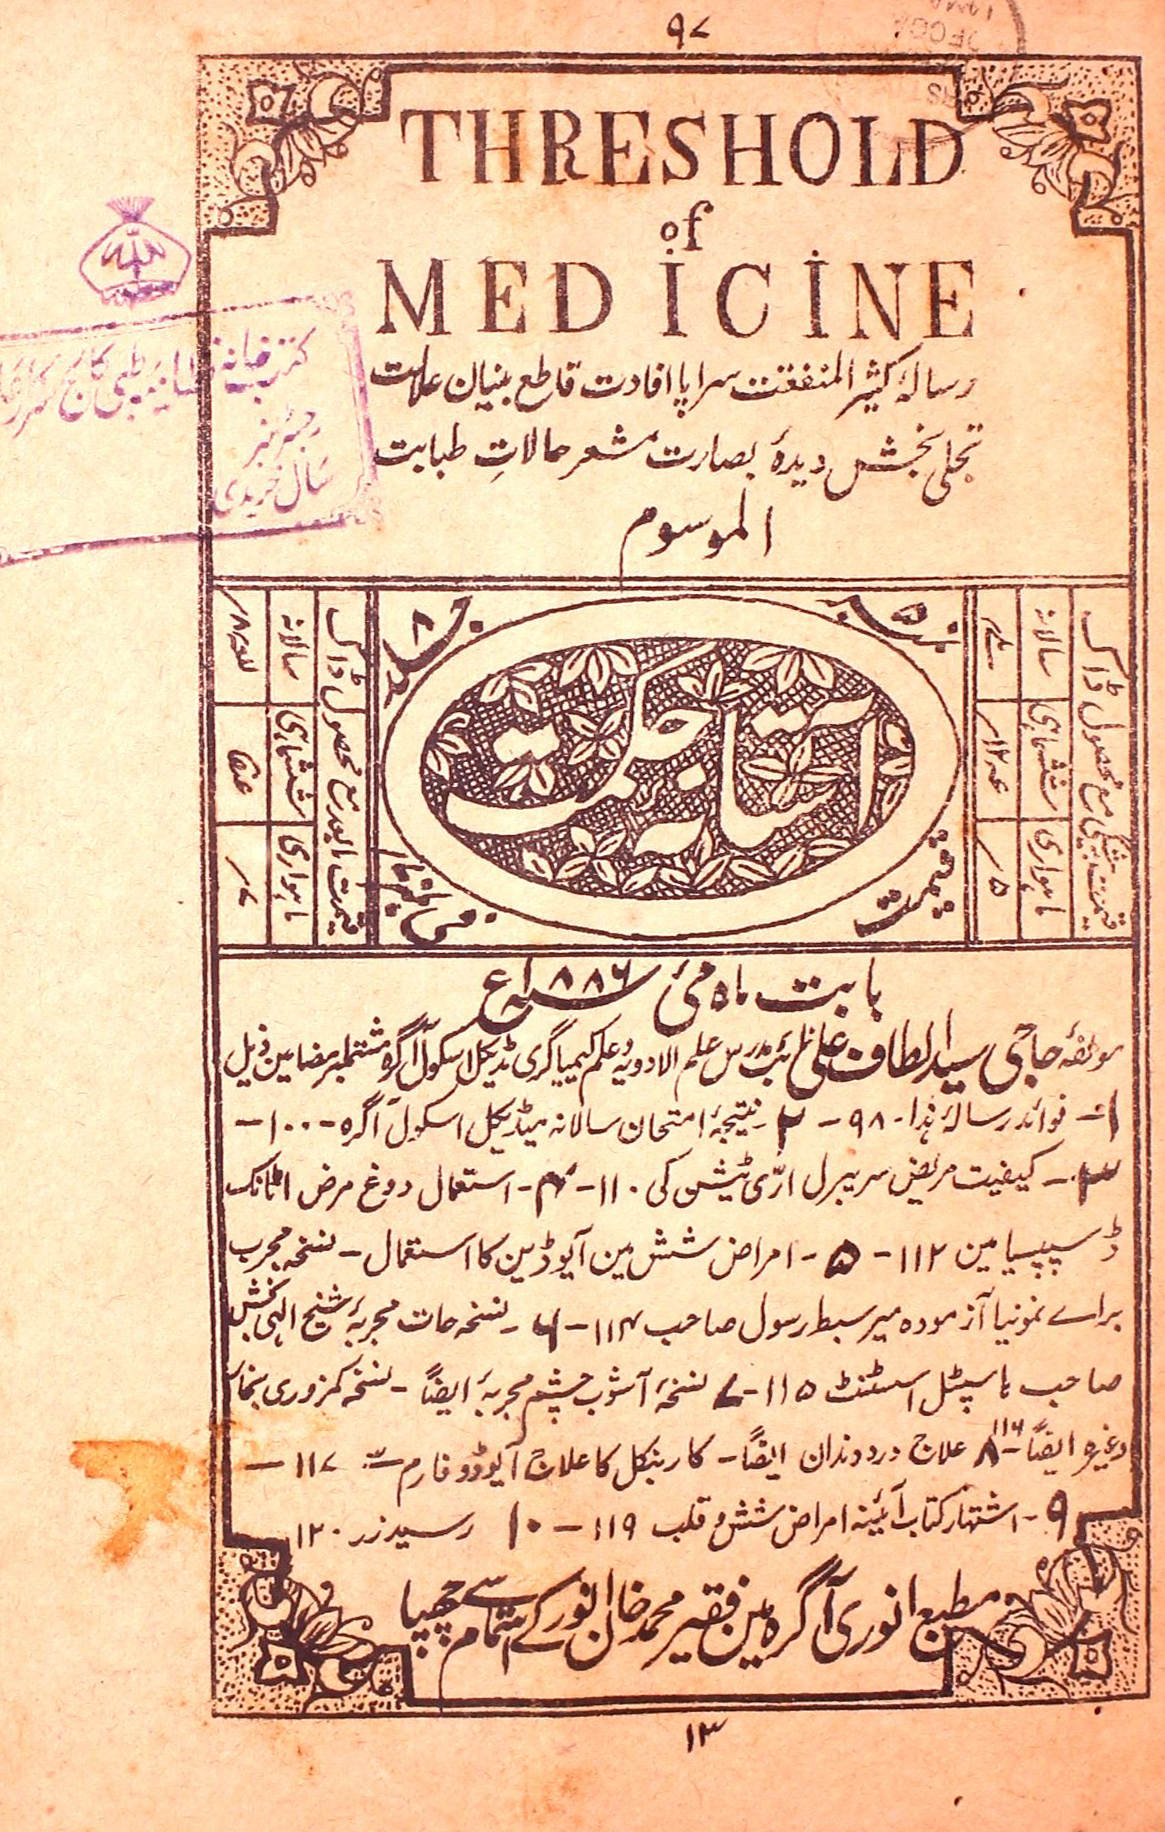 ۹۷
THRESHOLD
of
MEDICINE
رسالۂ کثیر المنفعت سراپا افادت قاطع بنیان علالت
تجلی بخش دیدۂ بصارت مشعر حالاتِ طبابت
الموسوم
نمبر ۵
جلد ۸
آستانہ حکمت
قیمت
قیمت پیشگی مع محصول ڈاک
سالانہ
ششماہی
ماہواری
۵ر
قیمت مابعد مع محصول ڈاک
سالانہ
ششماہی
ماہواری
۷ر
بابت ماہ مئی ۱۸۸۶ء
مولفۂ حاجی سید الطاف علی نائب مدرس علم الادویہ و علم کیمیاگری میڈیکل اسکول آگرہ مشتملبر مضامین ذیل
۱ - فوائد رسالۂ ہذا - ۹۸ - ۲ - نتیجۂ امتحان سالانہ میڈیکل اسکول آگرہ - ۱۰۰ -
۳ - کیفیت مریض سریبرل ارّی ٹیشن کی ۱۱۰ - ۴ - استعمال دوغ مرض اٹانک
ڈسپپسیا مین ۱۱۲ - ۵ - امراض شش مین آیوڈین کا استعمال - نسخہ مجرب
براے نمونیا آزمودہ میر سبط رسول صاحب ۱۱۴ - ۶ - نسخہ جات مجربۂ شیخ الہی بخش
صاحب ہاسپٹل اسسٹنٹ ۱۱۵ - ۷ نسخۂ آشوب چشم مجربۂ ایضاً - نسخہ کمزوری بخار
وغیرہ ایضاً ۱۱۶ - ۸ علاج درد دندان ایضاً - کاربنکل کا علاج آیوڈوفارم سے ۱۱۷ -
۹ - اشتہار کتاب آئینہ امراض شش و قلب ۱۱۹ - ۱۰ رسید زر ۱۲۰
مطبع انوری آگرہ مین فقیر محمد خان انور کے اہتمام سے چھپا
۱۳
اللہ
کتب خانہ نظامیہ طبی کالج سرکار عالی
رجسٹر نمبر
سال خریدی